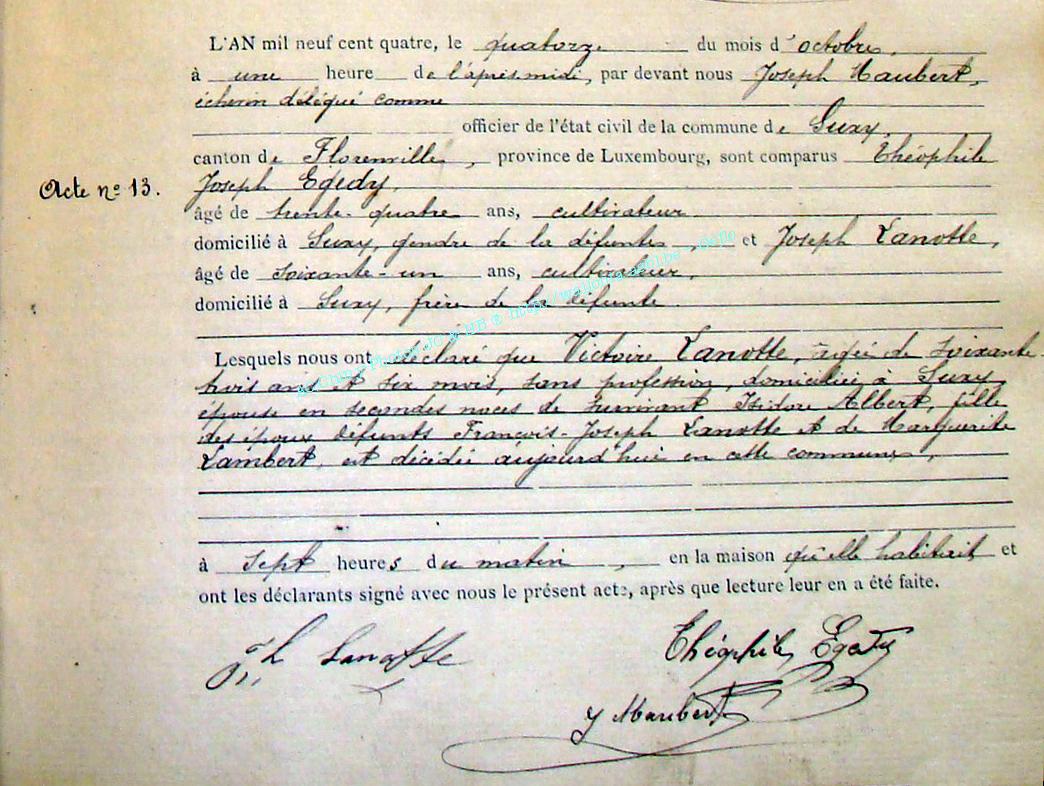 L'AN mil neuf cent quatre, le quatorze du mois d'octobre,
à une heure de l'après midi, par devant nous Joseph Maubert,
échevin délégué comme
officier de l'état civil de la commune de Suxy,
canton de Florenville, province de Luxembourg, sont comparus Théophile
Acte nº 13.
Joseph Egedy,
âgé de trente-quatre ans, cultivateur
domicilié à Suxy, gendre de la défunte et Joseph Lanotte,
âgé de soixante-un ans, cultivateur,
domicilié à Suxy, frère de la défunte
Lesquels nous ont déclaré que Victoire Lanotte, agée de soixante-
trois ans et six mois, sans profession, domiciliée à Suxy,
épouse en secondes noces de survivant Isidore Albert, fille
des époux défunts François-Joseph Lanotte et de Marguerite
Lambert, est décédée aujourd'hui en cette commune,
à sept heures du matin, en la maison qu'elle habitait et
ont les déclarants signé avec nous le présent acte, après que lecture leur en a été faite.
Jh Lanotte
Théophile Egedy
J Maubert